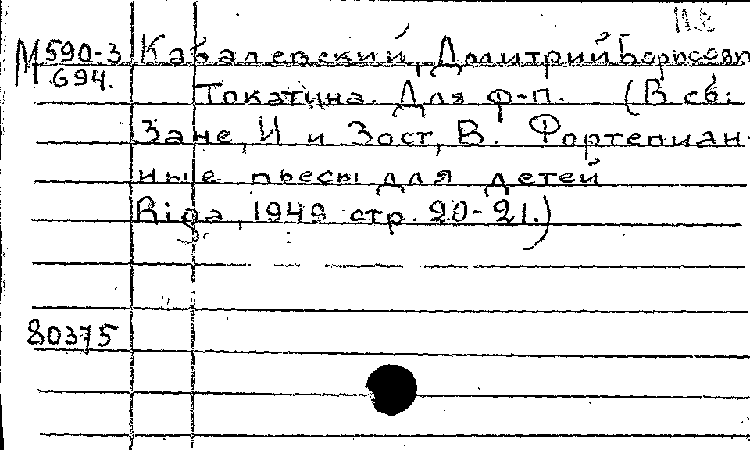 М 590-3 Кабалевский, Дмитрий Борисович
694.
Токатина. Для ф-п. (В сб:
Зане, И и Зост, В. Фортепиан-
ные пьесы для детей
Riga, 1949 стр. 20-21.)
80375